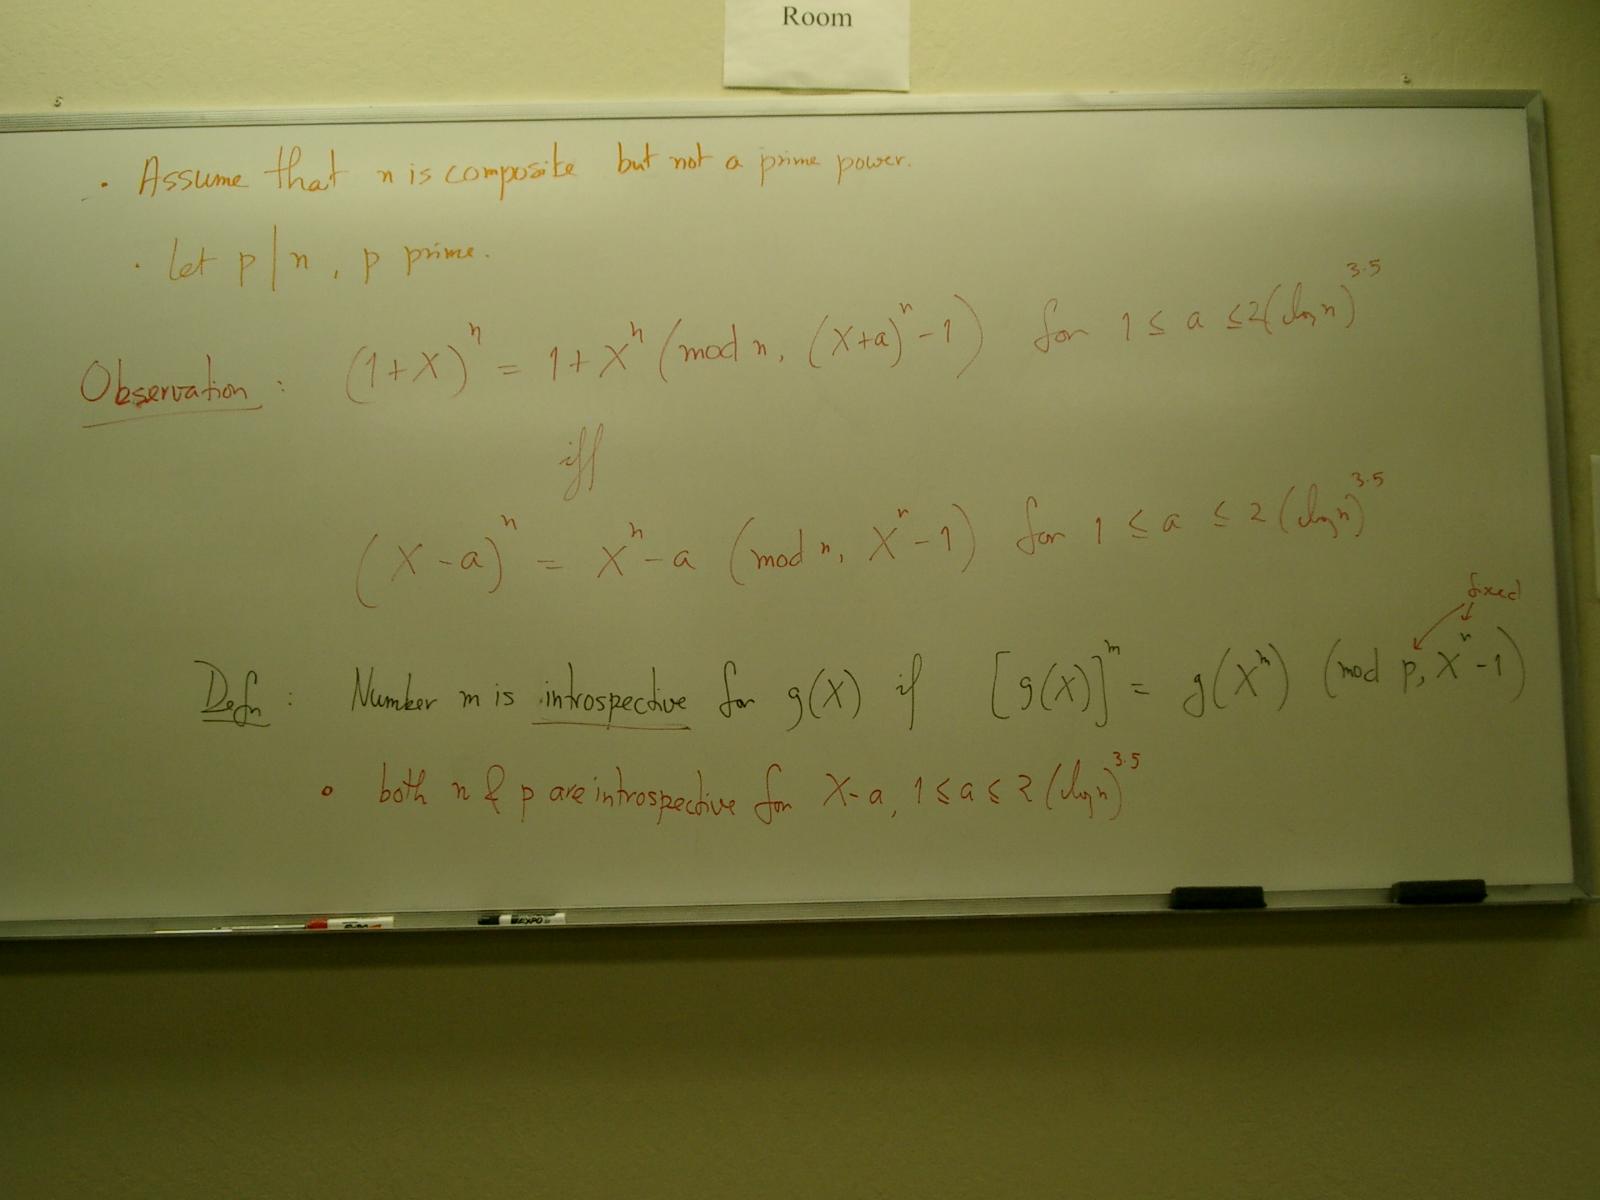 Room
· Assume that n is composite but not a prime power.
· Let p | n, p prime.
Observation : (1+X)^n = 1+X^n (mod n, (X+a)^n - 1) for 1 ≤ a ≤ 2(log n)^3.5
iff
(X-a)^n = X^n - a (mod n, X^n - 1) for 1 ≤ a ≤ 2(log n)^3.5
fixed
Defn : Number m is introspective for g(X) if [g(X)]^m = g(X^m) (mod p, X^n - 1)
• both n & p are introspective for X-a, 1 ≤ a ≤ 2(log n)^3.5
EXPO